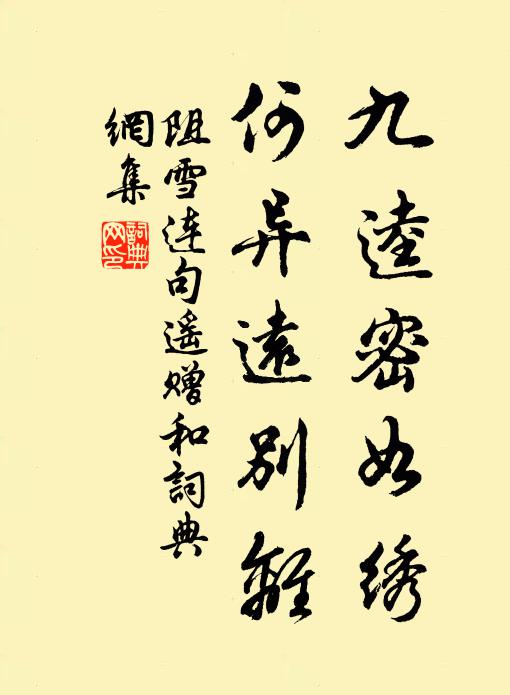 九逵密如绣
何异远别離
阻雪连句遥赠和詞典
網集
詞典
网印